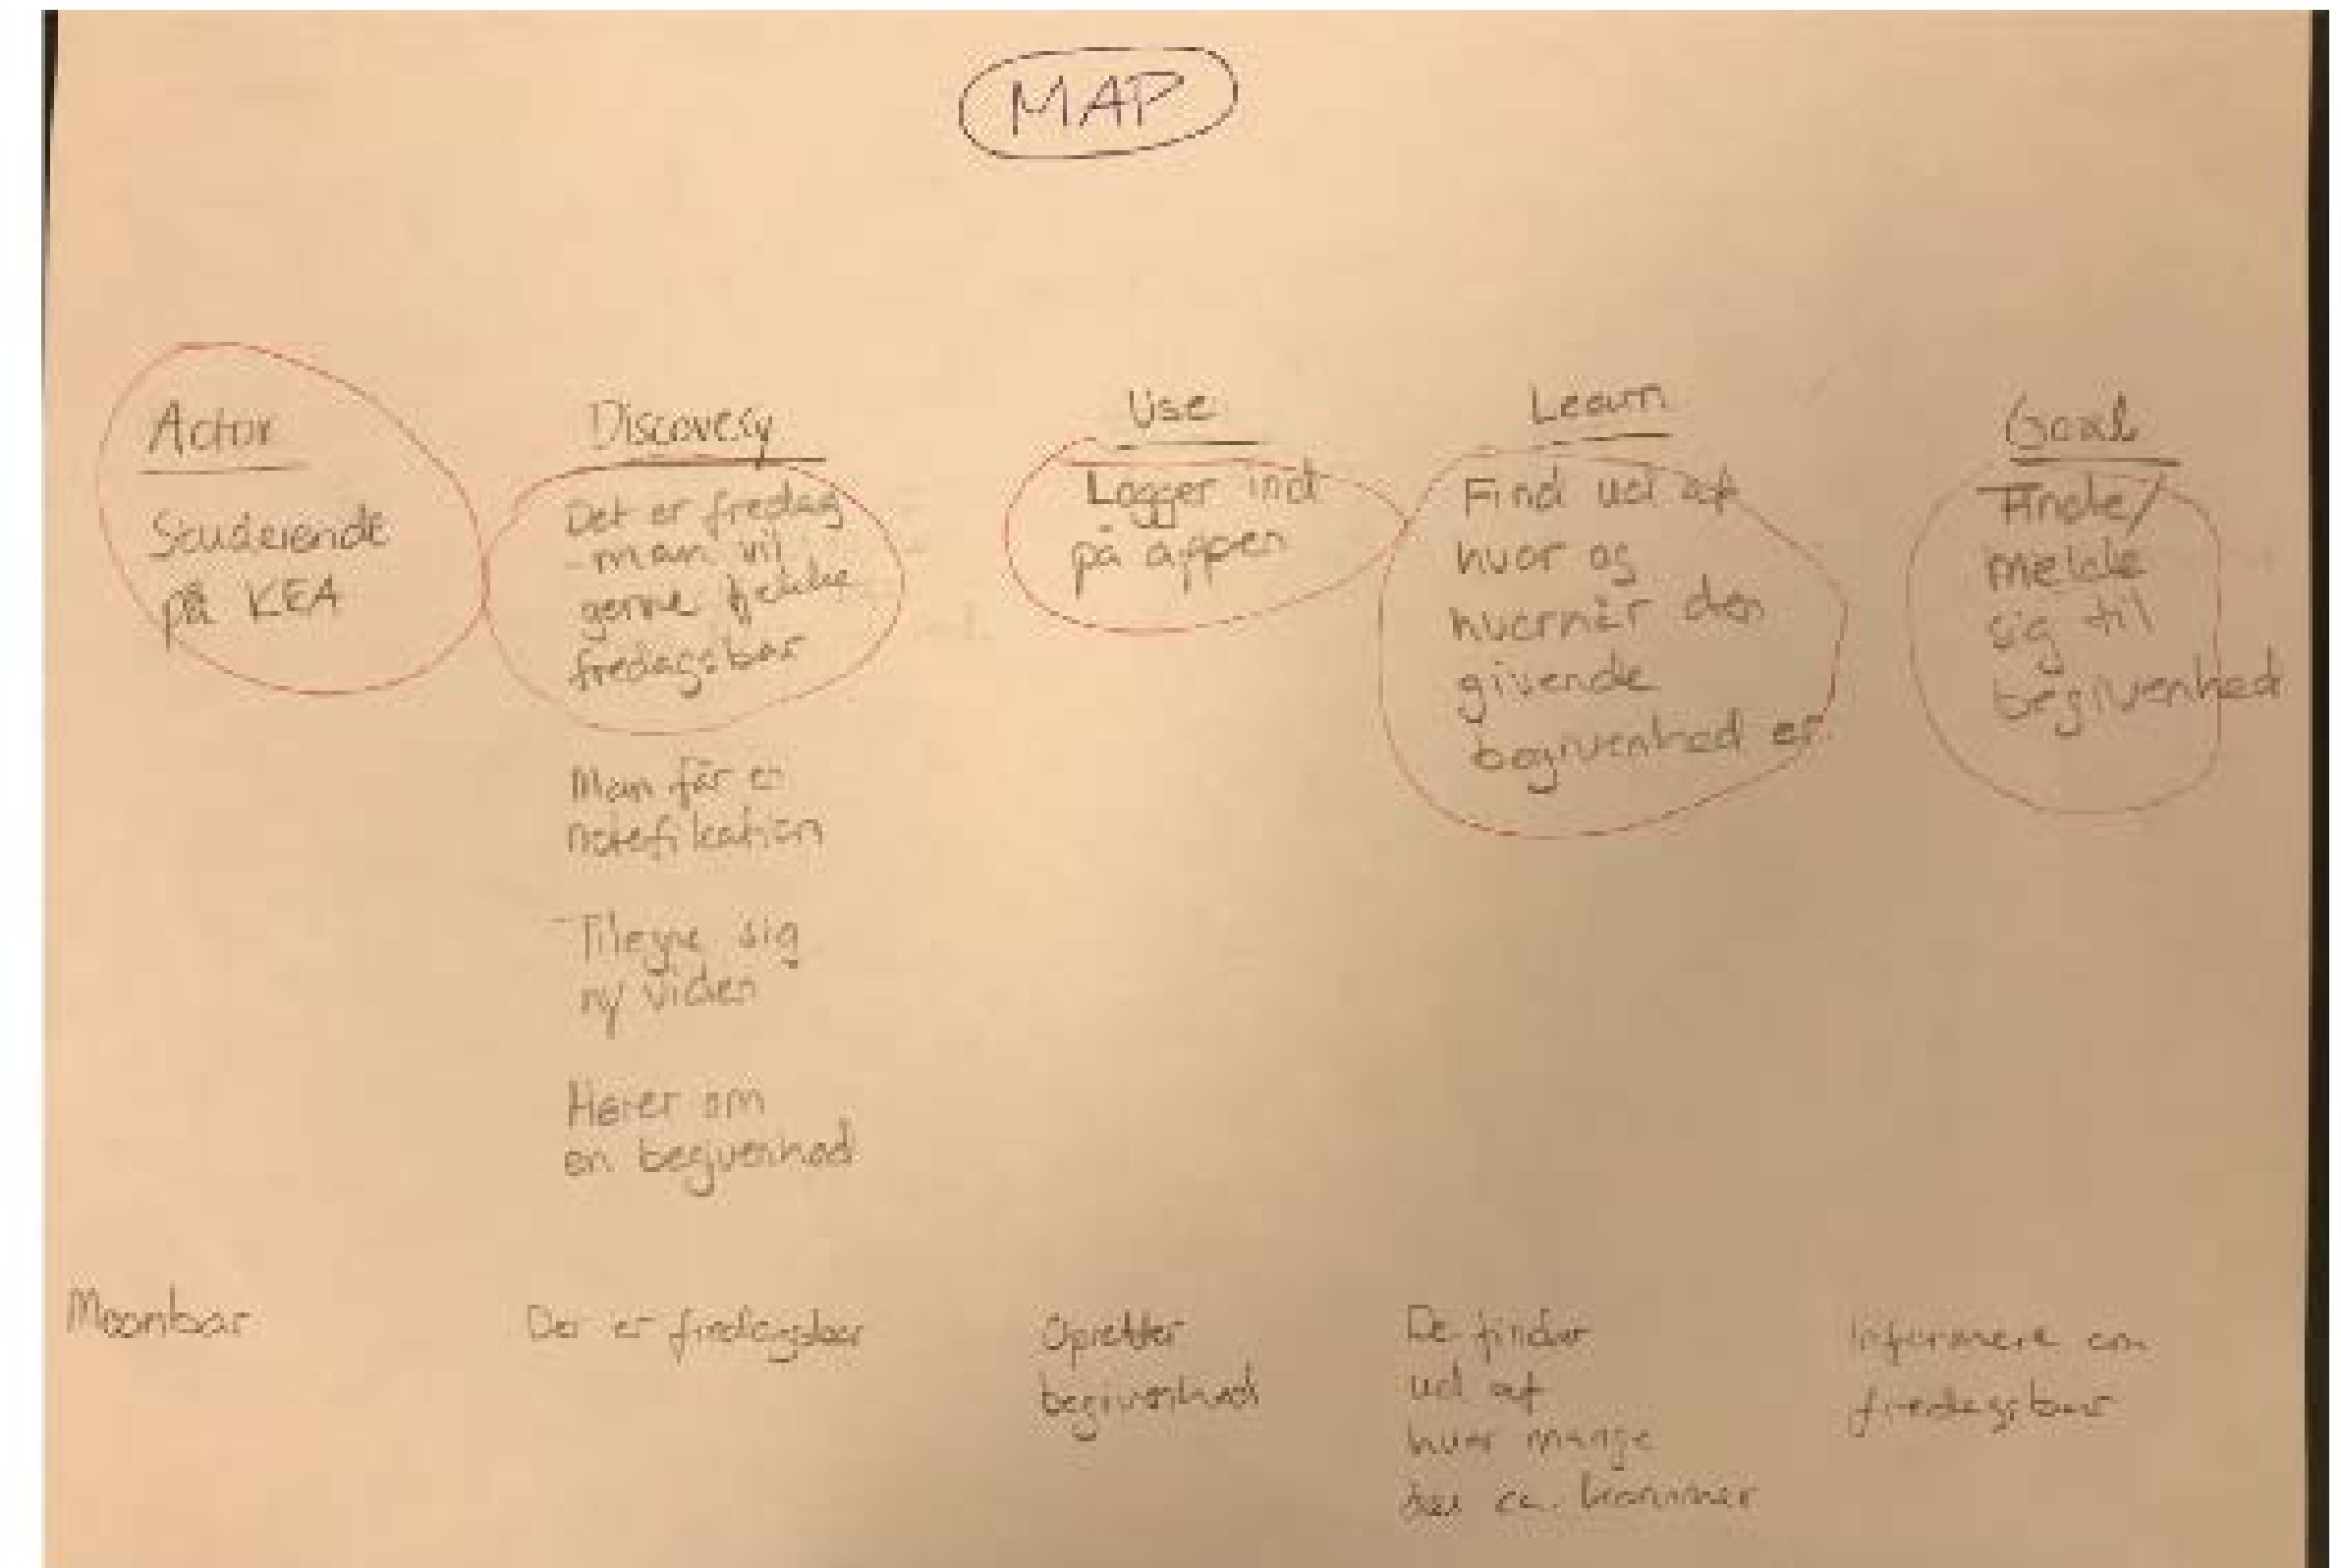 MAP
Actor
Studerende
på KEA
Discovery
Det er fredag
- man vil
gerne tjekke
fredagsbar
Man får en
notefikation
Tilegne sig
ny viden
Hører om
en begivenhed
Use
Logger ind
på appen
Learn
Find ud af
hvor og
hvornår den
givende
begivenhed er
Goal
Finde/
melde
sig til
begivenhed
Moonbar
Der er fredagsbar
Opretter
begivenhed
De finder
ud af
hvor mange
der ca. kommer
Informere om
fredagsbar